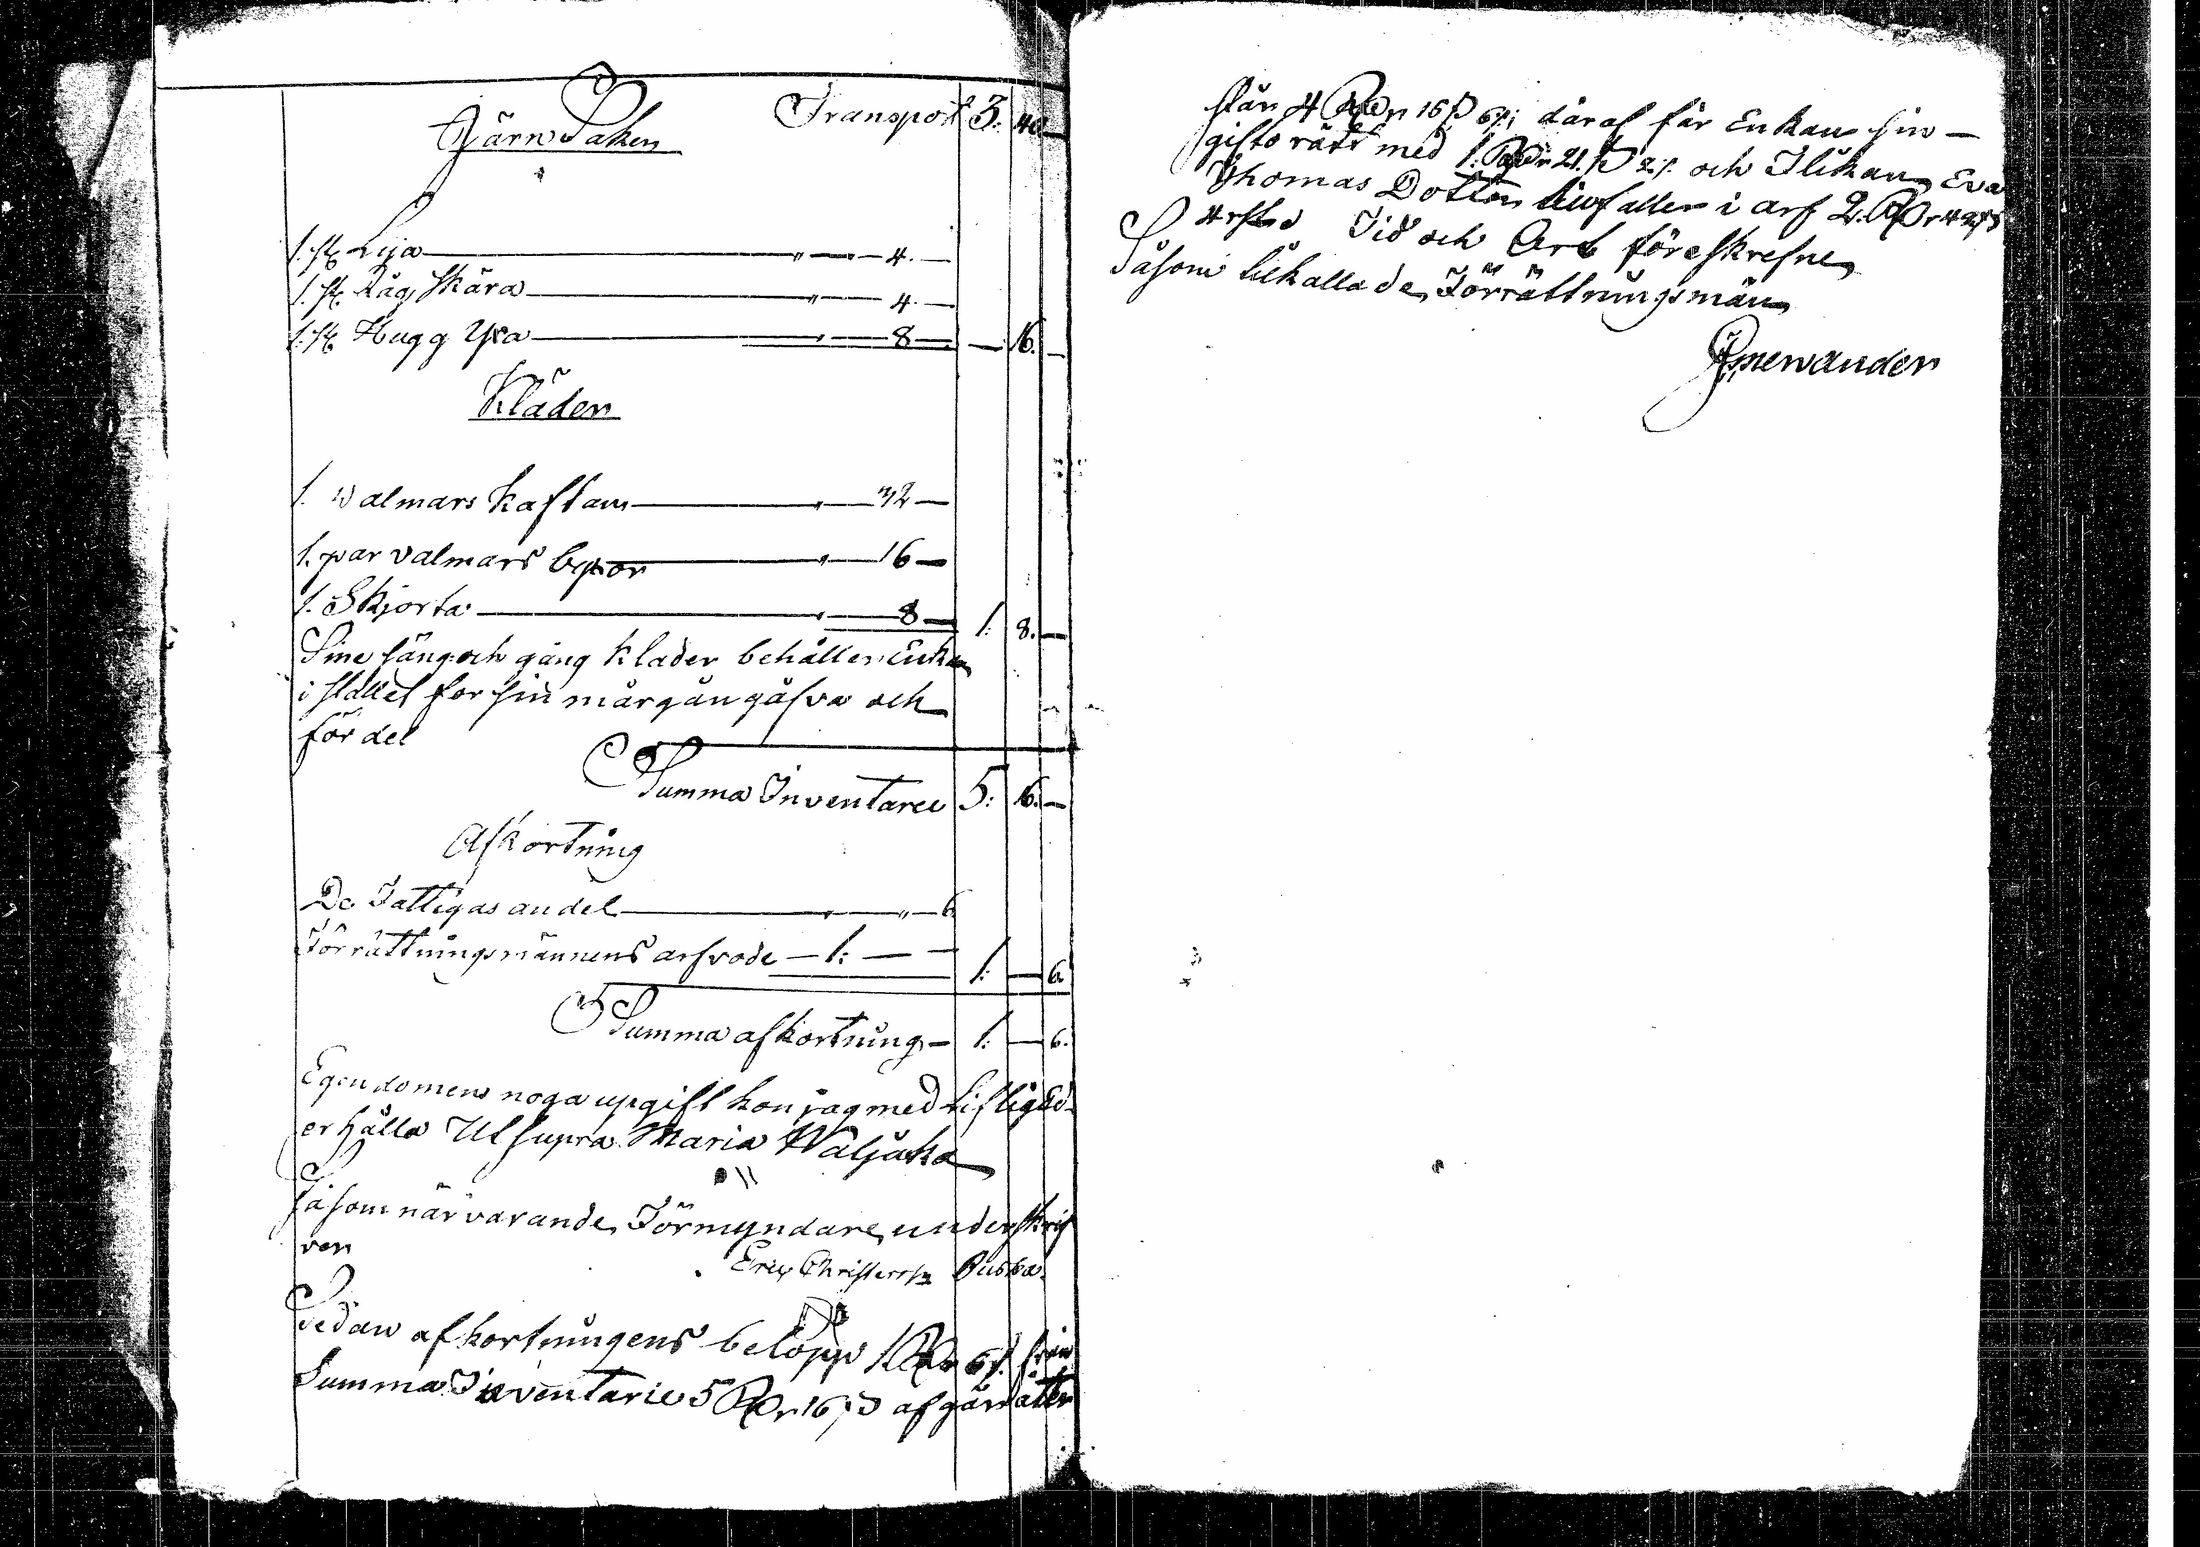 Transport 3: 40 —
Järn Saker
1. st. Lija — " — 4. —
1. st. Råg Skära — " — 4. —
1. st. Hugg Yxa — " — 8 — — 16. —
Kläder
1. Valmars Kaftan — " — 32 —
1. par valmars byxor — " — 16 —
1. Skjorta — " — 8 — 1: 8. —
Sine säng och gång kläder behåller Enkan
i stället för sin mårgångåfva och
fördel
Summa Inventarie 5: 16. —
Afkortning
De Fattigas andel — " — " — 6
Förrättningsmännens arfvode — 1: — — 1: — 6.
Summa afkortning — 1: — 6.
Egendomens noga upgift kan jag med Liflig Ed
erhålla Ut supra Maria Waljaka
Såsom närvarande Förmyndare underskrif
ver
Eric Christersson Buska.
Sedan afkortningens belopp 1 Rdr 6 r. från
Summa Inventarie 5 Rdr 16 s afgår åter
står 4 Rdr 16 s 6 r; däraf får Enkan sin —
giftorätt med 1: Rdr 21. s 2 r. och Flickan Eva
Thomas Dotter tilfaller i arf 2. Rdr 42 s
4 rst Tid och Ort föreskrefne,
Såsom tilkallade Förrättningsmän